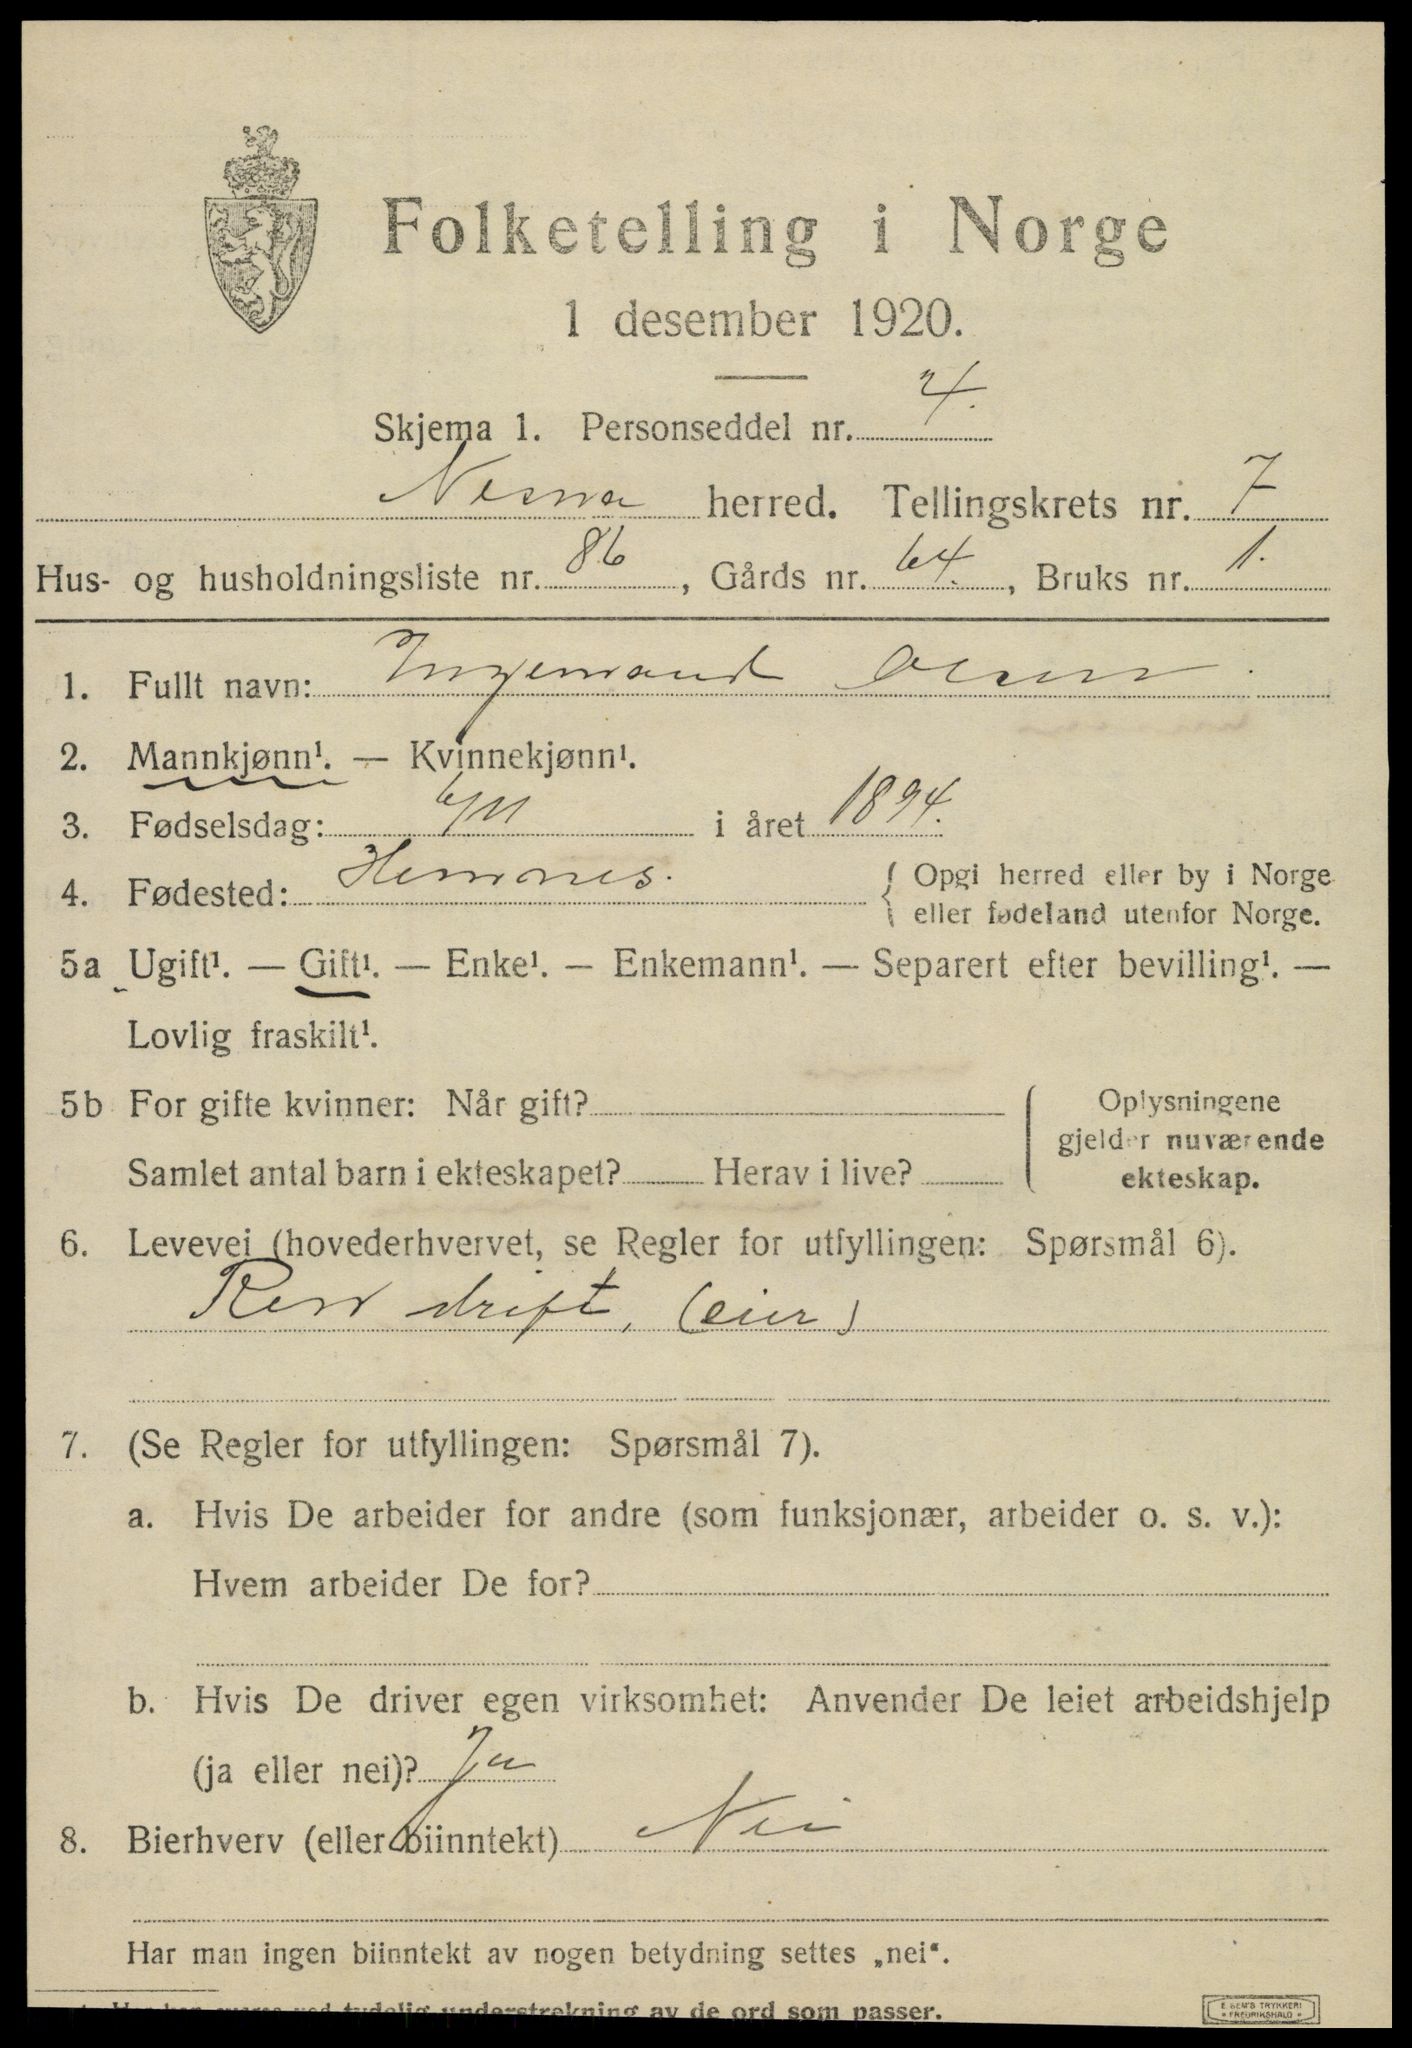 Folketelling i Norge
1 desember 1920.
Skjema 1. Personseddel nr. 4.
Nesna herred. Tellingskrets nr. 7
Hus- og husholdningsliste nr. 86, Gårds nr. 64., Bruks nr. 1.
1. Fullt navn: Olsen
2. Mannkjønn¹. — Kvinnekjønn¹.
3. Fødselsdag: 6/11 i året 1894.
4. Fødested: Hemnes. { Opgi herred eller by i Norge
eller fødeland utenfor Norge.
5a Ugift¹. — Gift¹. — Enke¹. — Enkemann¹. — Separert efter bevilling¹. —
Lovlig fraskilt¹.
5b For gifte kvinner: Når gift? { Oplysningene
gjelder nuværende
Samlet antal barn i ekteskapet? Herav i live? ekteskap.
6. Levevei (hovederhvervet, se Regler for utfyllingen: Spørsmål 6).
drift, (eier)
7. (Se Regler for utfyllingen: Spørsmål 7).
a. Hvis De arbeider for andre (som funksjonær, arbeider o. s. v.):
Hvem arbeider De for?
b. Hvis De driver egen virksomhet: Anvender De leiet arbeidshjelp
(ja eller nei)? Ja
8. Bierhverv (eller biinntekt) Nei
Har man ingen biinntekt av nogen betydning settes „nei“.
ved tydelig understrekning av de ord som passer.
E. SEM'S TRYKKERI
• FREDRIKSHALD •